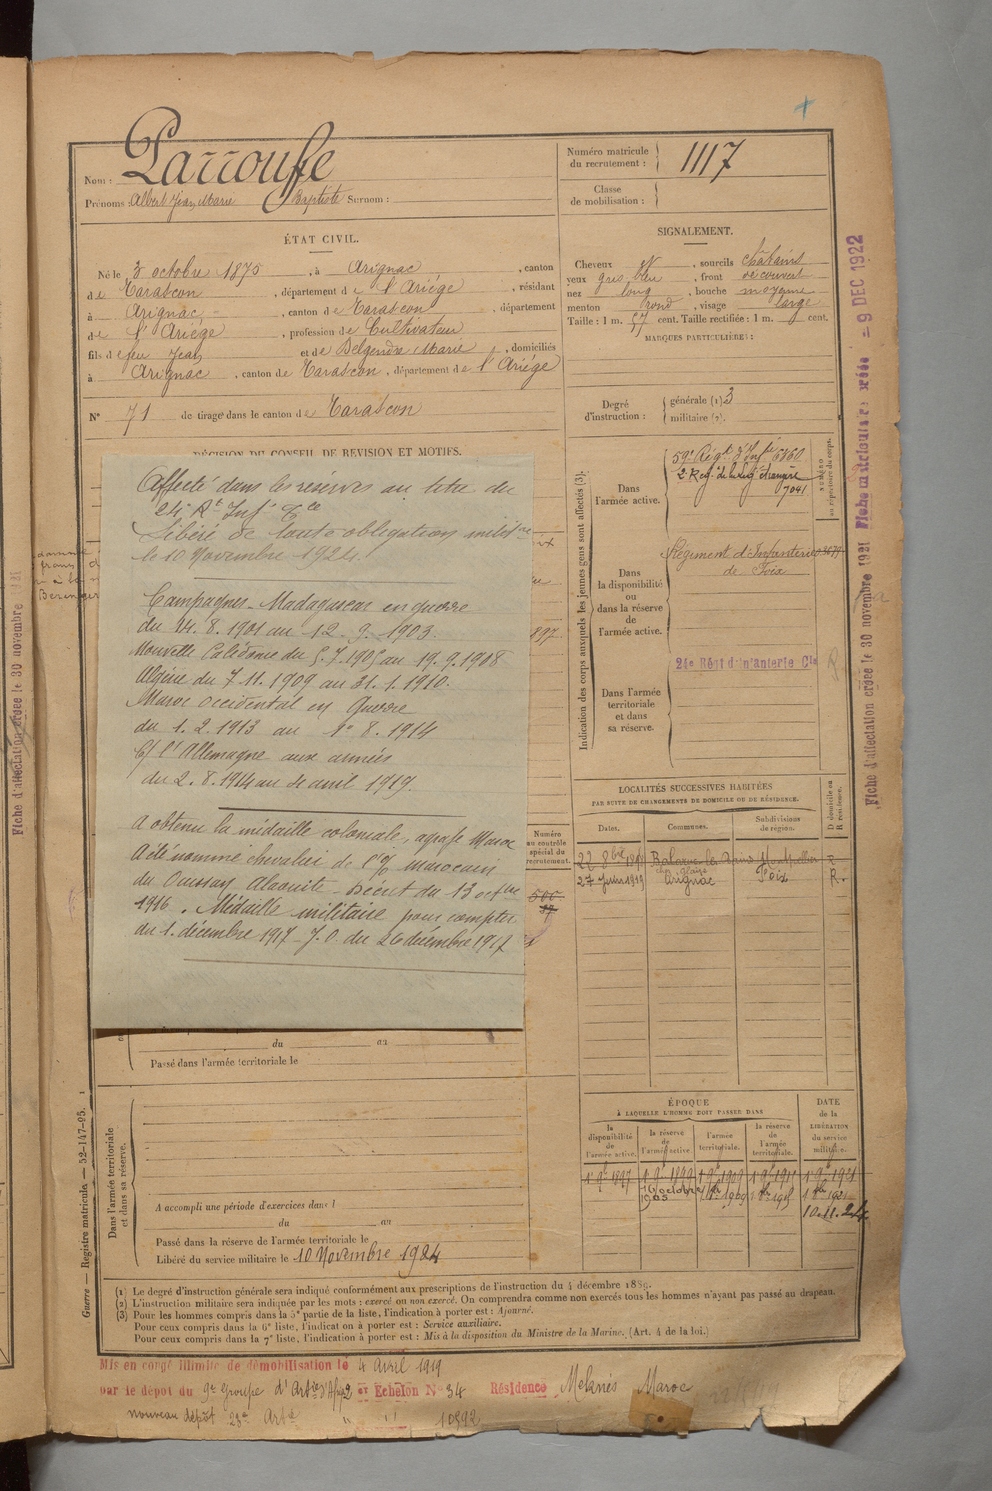 Nom : Larroufe
Prénoms : Albert Jean Marie Baptiste Surnom :
Numéro matricule du recrutement : 1117
Classe de mobilisation :
ÉTAT CIVIL.
Né le 3 octobre 1875, à Arignac, canton
de Tarascon, département de l'Ariège, résidant
à Arignac, canton de Tarascon, département
de l'Ariège, profession de Cultivateur
fils de feu Jean et de Delgendre Marie, domiciliés
à Arignac, canton de Tarascon, département de l'Ariége
N° 71 de tirage dans le canton de Tarascon
SIGNALEMENT.
Cheveux N, sourcils châtains
yeux gris bleu, front découvert
nez long, bouche moyenne
menton rond, visage large
Taille : 1 m. 57 cent. Taille rectifiée : 1 m. cent.
MARQUES PARTICULIÈRES :
Degré d'instruction : générale (1) 3
militaire (2).
DÉCISION DU CONSEIL DE REVISION ET MOTIFS.
Affecté dans les réserves au titre du
24e Rt Inf Cle
Libéré de toute obligation militre
le 10 Novembre 1924.
Campagnes - Madagascar en guerre
du 14.8.1901 au 12.9.1903.
Nouvelle Calédonie du 5.7.1905 au 19.9.1908
Algérie du 7.11.1909 au 31.1.1910.
Maroc occidental en Guerre
du 1.2.1913 au 1er 8.1914
C/ l'Allemagne aux armées
du 2.8.1914 au 4 avril 1919.
A obtenu la médaille coloniale, agrafe Maroc
A été nommé chevalier de l'O/ marocain
du Ouissam Alaouite - Décret du 13 octbre
1916. Médaille militaire pour compter
du 1. décembre 1917 - J.O. du 26 décembre 1917
Indication des corps auxquels les jeunes gens sont affectés (3).
NUMÉRO au répertoire du corps.
Dans l'armée active.
59e Régt d'Infie 6860
2 Reg. de la Leg. étrangère
7041
Dans la disponibilité ou dans la réserve de l'armée active.
Régiment d'Infanterie
de Foix
Dans l'armée territoriale et dans sa réserve.
24e Régt d'infanterie Cle
LOCALITÉS SUCCESSIVES HABITÉES
PAR SUITE DE CHANGEMENTS DE DOMICILE OU DE RÉSIDENCE.
Dates. Communes. Subdivisions de région. D domicile ou R résidence.
22 8bre Balaruc les Bains Montpellier R
27 Juin 1919 Arignac Foix R.
Numéro au contrôle spécial du recrutement.
500
du au
Passé dans l'armée territoriale le
Dans l'armée territoriale et dans sa réserve.
A accompli une période d'exercices dans l
du au
Passé dans la réserve de l'armée territoriale le
Libéré du service militaire le 10 Novembre 1924
ÉPOQUE
À LAQUELLE L'HOMME DOIT PASSER DANS
la disponibilité de l'armée active. la réserve de l'armée active. l'armée territoriale. la réserve de l'armée territoriale. DATE de la LIBÉRATION du service militaire.
1 9bre 1897 1 9bre 1899 1 9bre 1909
16 octobre 1905
10.11.24
(1) Le degré d'instruction générale sera indiqué conformément aux prescriptions de l'instruction du 4 décembre 1889.
(2) L'instruction militaire sera indiquée par les mots : exercé ou non exercé. On comprendra comme non exercés tous les hommes n'ayant pas passé au drapeau.
(3) Pour les hommes compris dans la 5e partie de la liste, l'indication à porter est : Ajourné.
Pour ceux compris dans la 6e liste, l'indication à porter est : Service auxiliaire.
Pour ceux compris dans la 7e liste, l'indication à porter est : Mis à la disposition du Ministre de la Marine. (Art. 4 de la loi.)
Guerre — Registre matricule. — 52-147-95.
Mis en congé illimité de démobilisation le 4 Avril 1919
par le dépôt du 9e Groupe d'Artie d'Afrq 2 er Echelon N° 34 Résidence Meknès Maroc
nouveau dépôt 28e Artie " " 10592
Fiche d'affectation créée le 30 novembre 1921
Fiche matriculaire créée = 9 DEC 1922
Fiche d'affectation créée le 30 novembre 1921